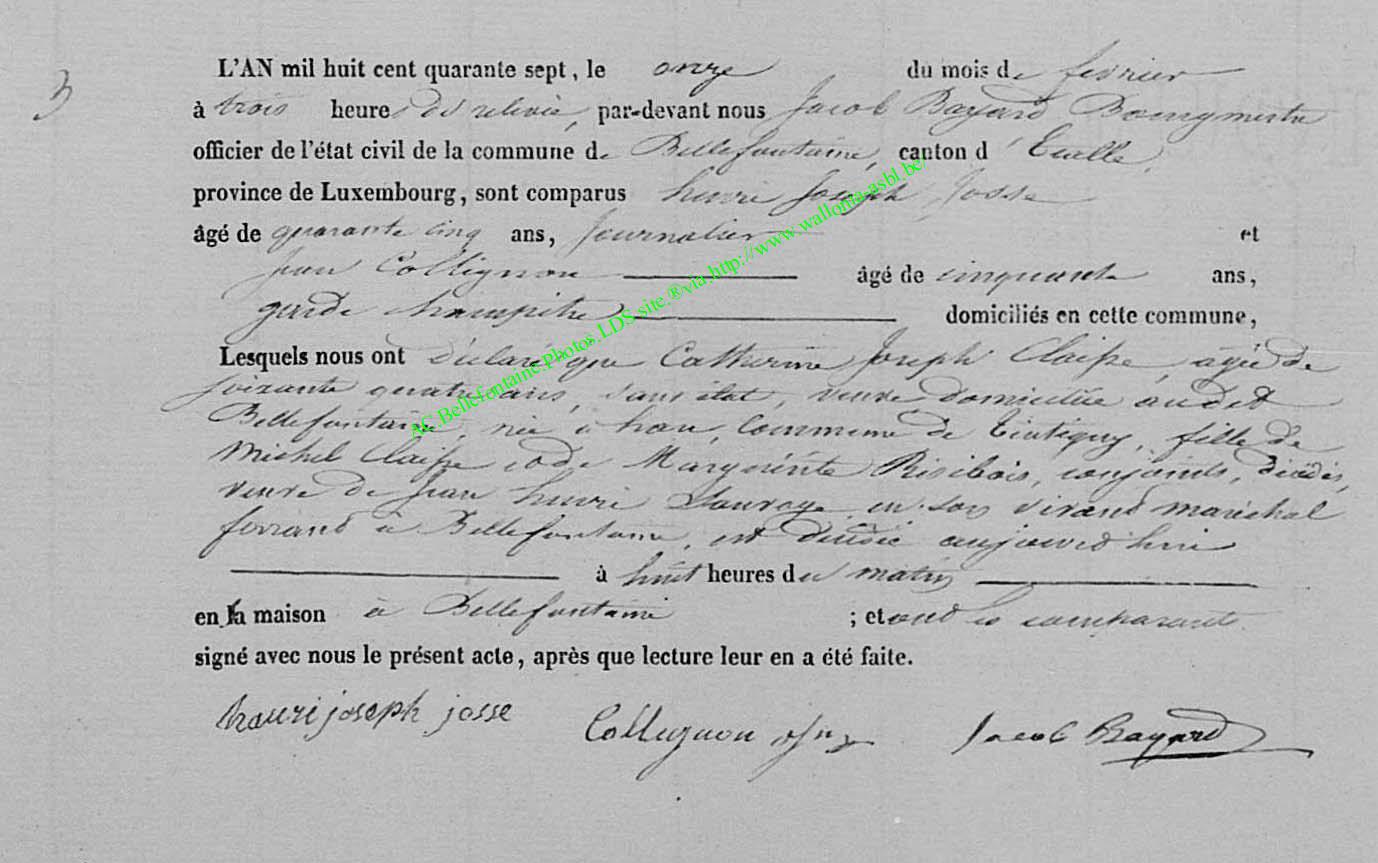 3
L'AN mil huit cent quarante sept, le onze du mois de fevrier
à trois heures de relevée, par-devant nous Jacob Bayard Bourgmestre
officier de l'état civil de la commune de Bellefontaine, canton d'Etalle,
province de Luxembourg, sont comparus henri Joseph Josse
âgé de quarante cinq ans, Journalier et
Jean Collignon âgé de cinquante ans,
garde champêtre domiciliés en cette commune,
Lesquels nous ont déclaré que Catherine Joseph Claisse, agée de
soixante quatre ans, sans état, veuve domiciliée audit
Bellefontaine, née à han, Commune de Tintigny, fille de
Michel Claisse et de Marguerite Risibois, conjoints, décédés,
veuve de Jean henri Sauvage, en son vivant maréchal
ferrand à Bellefontaine, est décédée aujourd'hui
à huit heures du matin
en sa maison à Bellefontaine ; et ont les comparants
signé avec nous le présent acte, après que lecture leur en a été faite.
hauri joseph josse Collignon Jacob Bayard
AC.Bellefontaine.Photos.LDS site.®via.http://www.wallonia-asbl.be/